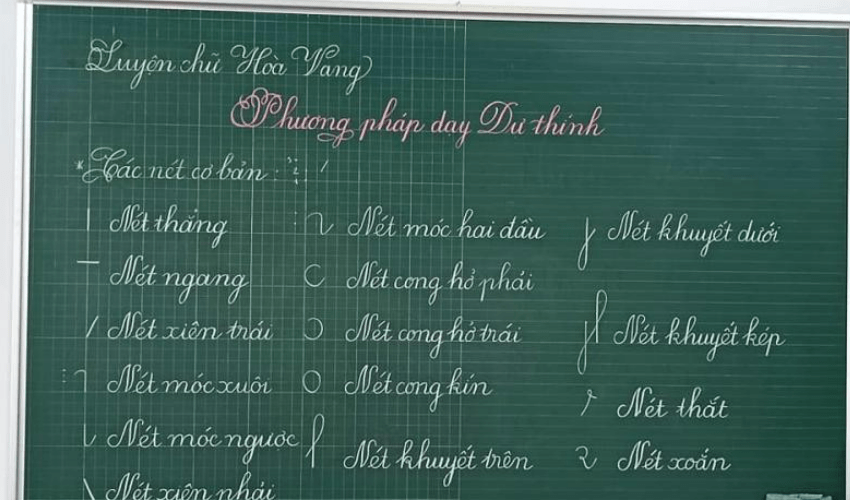 Luyện chữ Hòa Vang
Phương pháp dạy Dự thính
* Các nét cơ bản :
Nét thẳng
Nét ngang
Nét xiên trái
Nét móc xuôi
Nét móc ngược
Nét xiên phải
Nét móc hai đầu
Nét cong hở phải
Nét cong hở trái
Nét cong kín
Nét khuyết trên
Nét khuyết dưới
Nét khuyết kép
Nét thắt
Nét xoắn